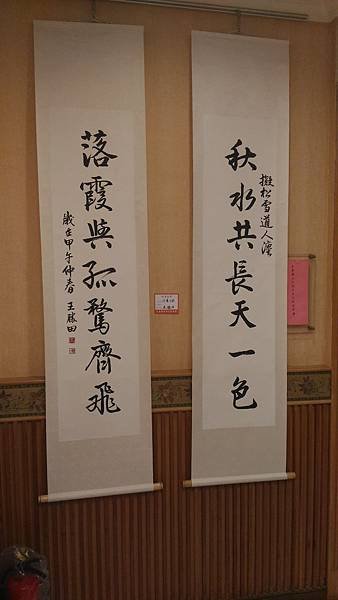 擬松雪道人灋
秋水共長天一色
落霞與孤鶩齊飛
歲在甲午仲春 王勝田